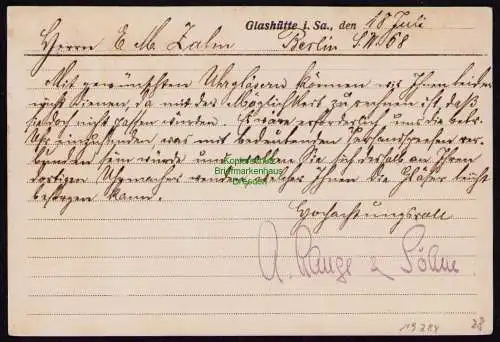 Glashütte i. Sa., den 18 Juli
Herrn E M. Zahn Berlin S.W. 68
Mit gewünschten Uhrgläsern können wir Ihnen leider
nicht dienen, da mit der Möglichkeit zu rechnen ist, daß
sie doch nicht passen würden. Es wäre erforderlich uns die betr.
Uhr einzusenden was mit bedeutenden ver-
bunden sein würde und wollen Sie sich deshalb an Ihren
dortigen Uhrmacher wenden welcher Ihnen die Gläser leicht
besorgen kann.
Kopierschutz
Briefmarkenhaus
Dresden
Hochachtungsvoll
A. Lange & Söhne